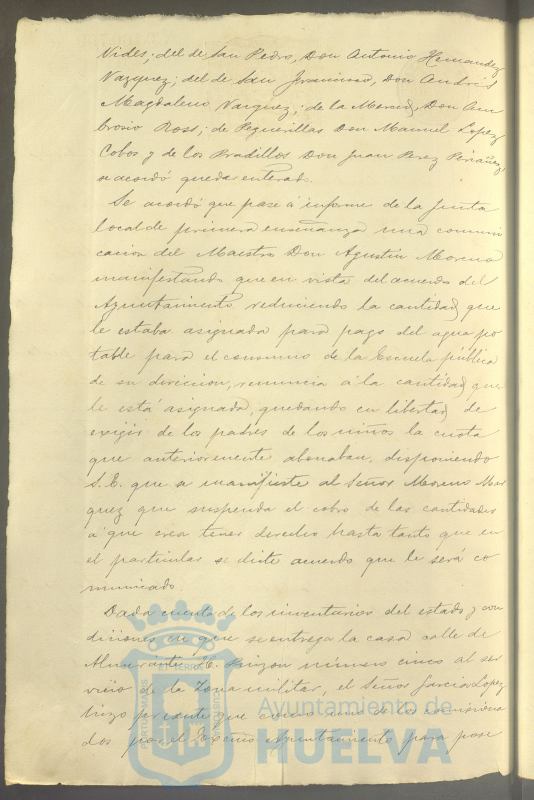 Vides; del de San Pedro, Don Antonio Hernandez
Vazquez; del de San Francisco, Don Andrés
Magdaleno Vazquez; de la Merced, Don Am
brosio Ross; de Peguerillas Don Manuel Lopez
Cobos y de los Pradillos Don Juan Perez Periañez,
se acordó quedar enterado.
Se acordó que pase á informe de la Junta
local de primera enseñanza una comuni
cacion del Maestro Don Agustin Moreno
manifestando que en vista del acuerdo del
Ayuntamiento reduciendo la cantidad que
le estaba asignada para pago del agua po
table para el consumo de la Escuela pública
de su direccion, renuncia á la cantidad que
le está asignada, quedando en libertad de
exigir de los padres de los niños la cuota
que anteriormente abonaban, disponiendo
S.E. que se manifieste al Señor Moreno Mar
quez que suspenda el cobro de las cantidades
á que crea tener derecho hasta tanto que en
el particular se dicte acuerdo que le será co
municado.
Dada cuenta de los inventarios del estado y con
diciones en que se entrega la casa calle de
Almirante H. Pinzon número cinco al ser
vicio de la Zona militar, el Señor Garcia Lopez
hizo presente que como uno de los comisiona
dos por el Excmo Ayuntamiento para pose
Ayuntamiento de
HUELVA